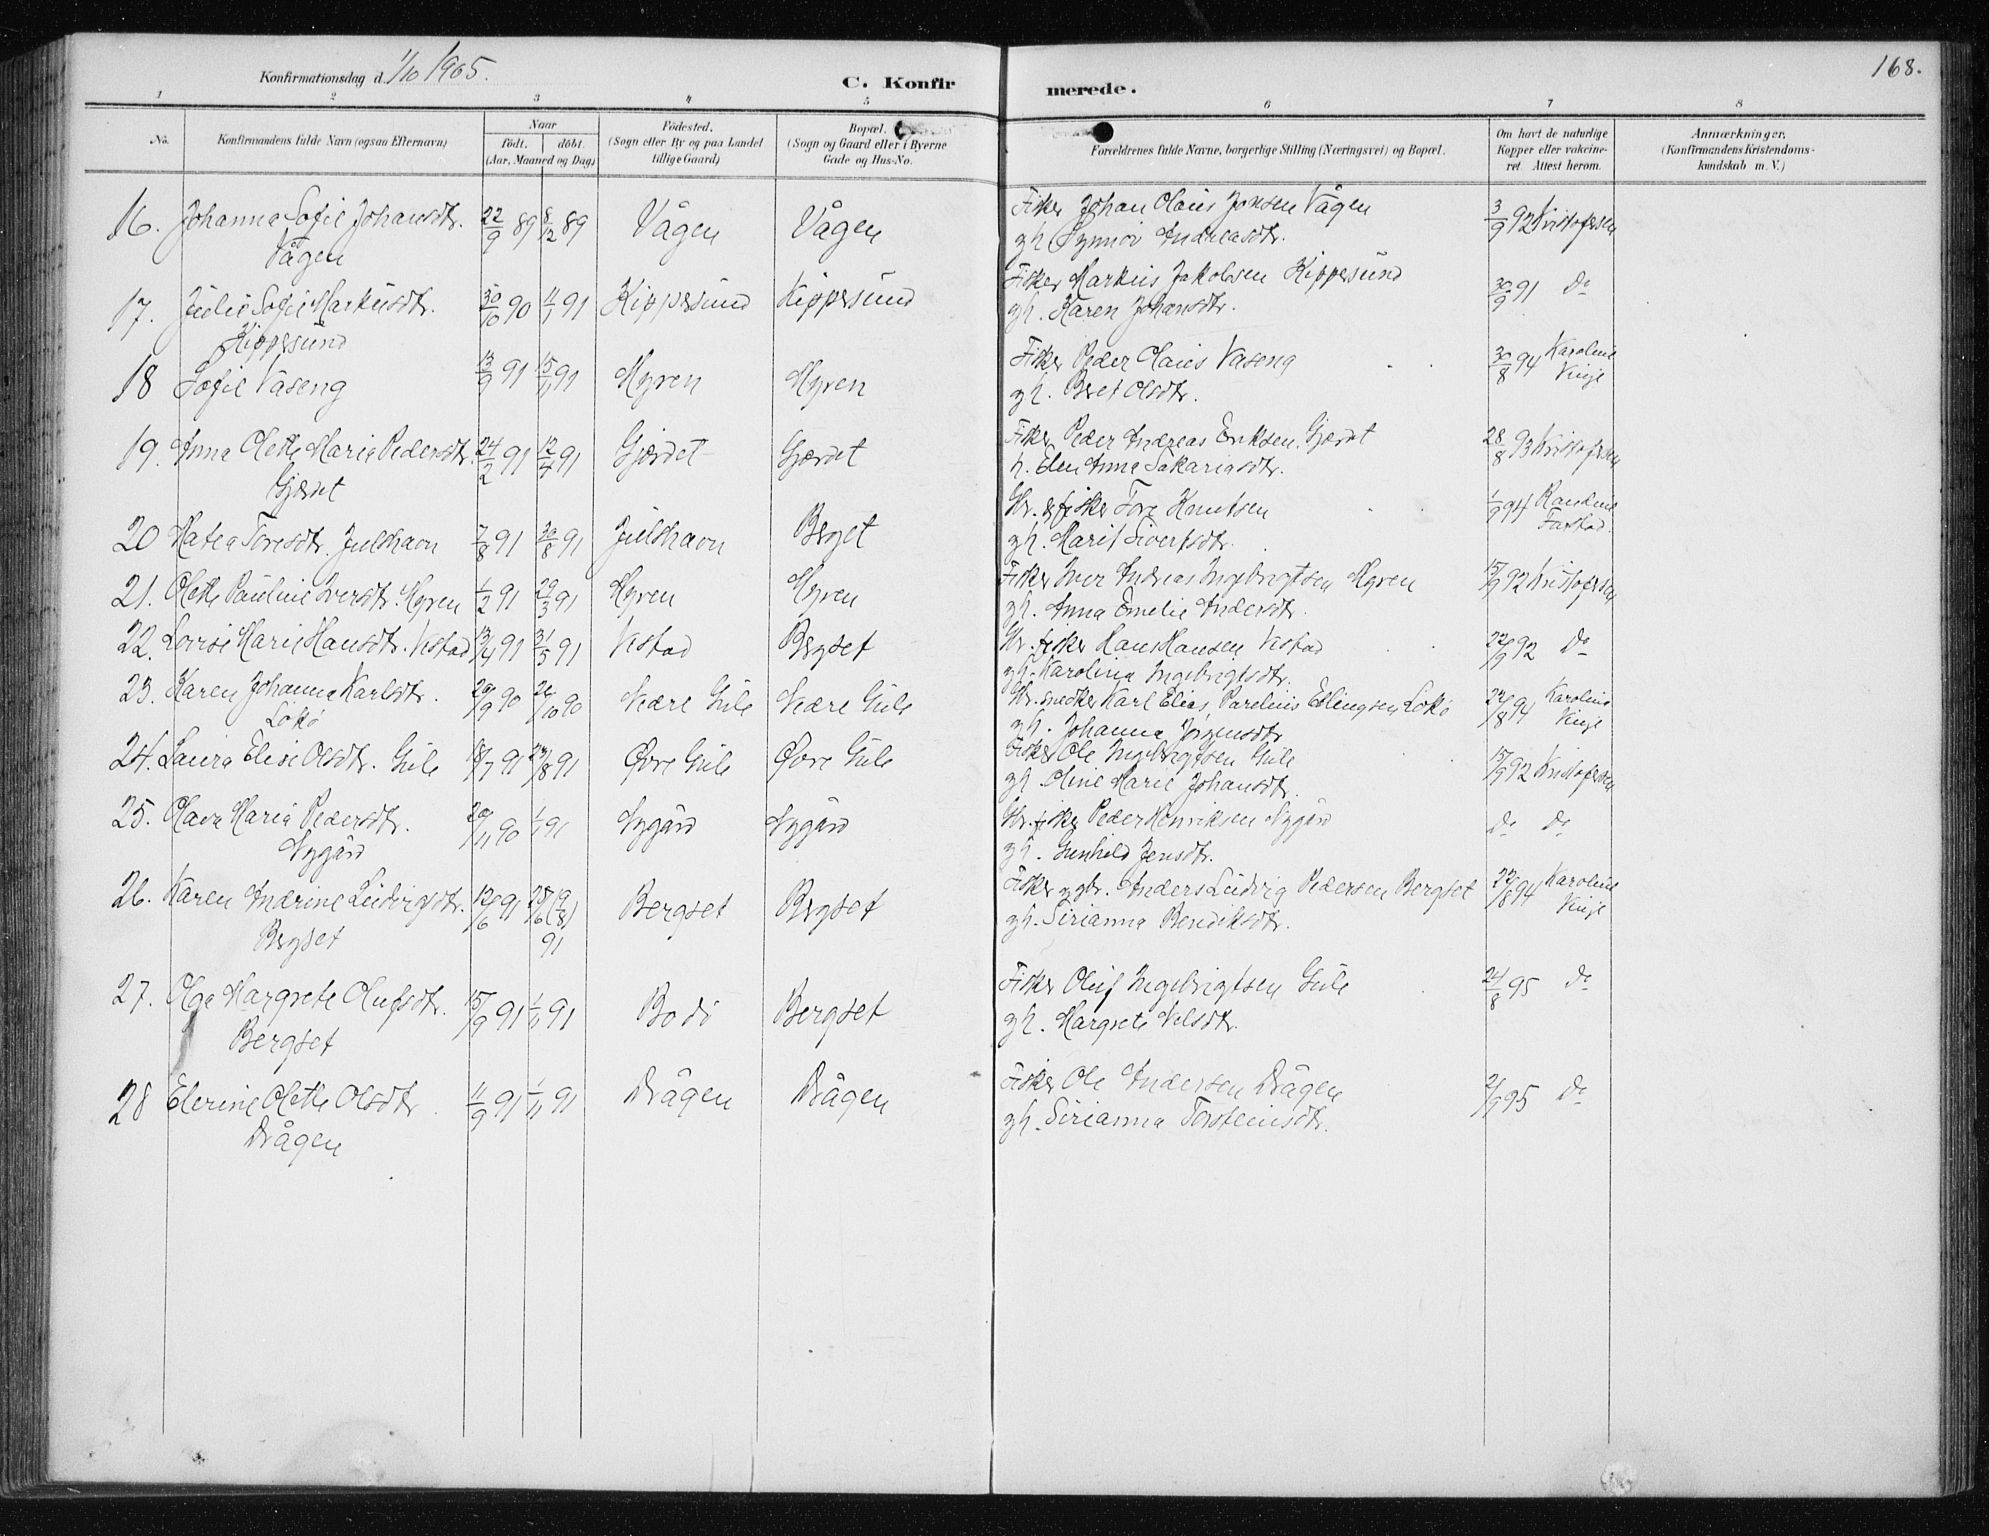 Konfirmationsdag d. 1/10 1905.
C. Konfirmerede.
168.
1 2 3 4 5 6 7 8
No.
Konfirmandens fulde Navn (ogsaa Efternavn)
Naar
født. døbt.
(Aar, Maaned og Dag)
Fødested.
(Sogn eller By og paa Landet
tillige Gaard)
Bopæl.
(Sogn og Gaard eller i Byerne
Gade og Hus-No.
Forældrenes fulde Navne, borgerlige Stilling (Næringsvei) og Bopæl.
Om havt de naturlige
Kopper eller vakcine-
ret. Attest herom.
Anmærkninger.
(Konfirmandens Kristendoms-
kundskab m. V.)
16. Johanna Sofie Johansdtr. 22/9 89 8/12 89 Vågen Vågen Fisker Johan Claus Jonsen Vågen 3/9 92 Kristofersen
Vågen gh. Synnøv Andreasdtr.
17. Julie Sofie Markusdtr. 30/10 90 1/1 91 Kippersund Kippersund Fisker Markus Jakobsen Kippersund 30/9 91 Do
Kippersund gh. Karen Johansdtr.
18 Sofie Vaseng 13/9 91 15/11 91 Myren Myren Fisker Peder Claus Vaseng 30/8 94 Karoline
gh. Beret Olsdtr. Vinje
19. Anna Olette Maria Pedersdtr. 24/2 91 12/4 91 Gjærdet Gjærdet Fisker Peder Andreas Eriksen Gjærdet 28/8 93 Kristofersen
Gjærdet h. Elen Anna Sakariasdtr.
20 Matea Toresdtr. Julshavn 7/8 91 30/8 91 Julshavn Berget Gbr. & fisker Tore Knutsen 1/9 94 Randine
gh. Marit Sivertsdtr. Farstad.
21. Olette Pauline Iversdtr. Myren 1/2 91 29/3 91 Myren Myren Fisker Iver Andreas Ingebrigtsen Myren 15/9 92 Kristofersen
gh. Anna Emelie Andersdtr.
22. Lovise Marie Hansdtr. Vestad 13/4 91 31/5 91 Vestad Bergset Gbr. fisker Hans Hansen Vestad 22/9 92 Do
gh. Karolina Ingebrigtsdtr.
23. Karen Johanna Karlsdtr. 29/9 90 26/10 90 Nedre Gule Nedre Gule Gbr. snedker Karl Elias Parelius Edlingsen Lökö 24/8 94 Karoline
Lökö gh. Johanna Jörgensdtr. Vinje
24. Laura Elise Olsdtr. Gule 18/7 91 23/8 91 Övre Gule Övre Gule Fisker Ole Ingebrigtsen Gule 15/9 92 Kristofersen
gh. Oline Marie Johansdtr.
25. Olava Maria Pedersdtr. 29/11 90 1/1 91 Nygård Nygård Gbr. fisker Peder Henriksen Nygård Do Do
Nygård gh. Gunhild Jensdtr.
26. Karen Andrine Ludvigsdtr. 12/6 91 28/6 (9/8) Bergset Bergset Fisker gbr. Anders Ludvig Pedersen Bergset 22/8 94 Karoline
Bergset 91 gh. Sirianna Bendiksdtr. Vinje
27. Olga Margrete Olufsdtr. 15/9 91 1/11 91 Bodö Bergset Fisker Oluf Ingebrigtsen Gule 24/8 95 Do
Bergset gh. Margrete Nilsdtr.
28 Elerine Olette Olsdtr. 11/9 91 1/11 91 Drågen Drågen Fisker Ole Andersen Drågen 2/9 95 Do
Drågen gh. Sirianna Torsteinsdtr.